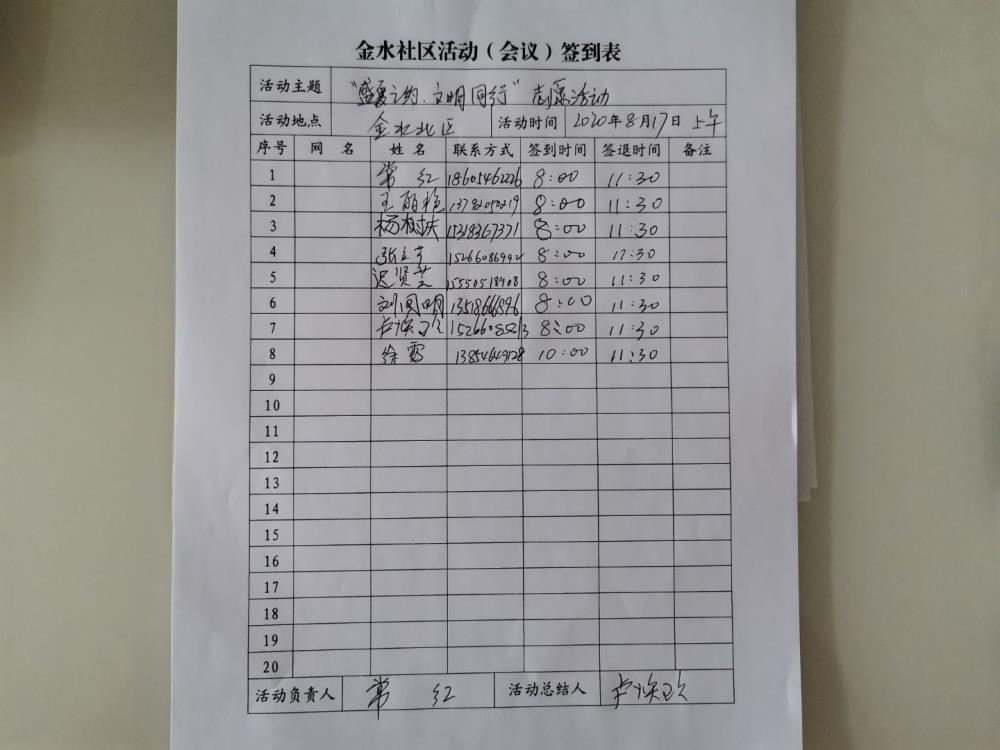 金水社区活动（会议）签到表
活动主题 “盛夏之约、文明同行”志愿活动
活动地点 金水北区 活动时间 2020年8月17日 上午
序号 网 名 姓 名 联系方式 签到时间 签退时间 备注
1 常 红 18605462226 8:00 11:30
2 王丽艳 8:00 11:30
3 杨树扶 8:00 11:30
4 张立芳 8:00 11:30
5 迟贤芝 15550518908 8:00 11:30
6 刘国明 8:00 11:30
7 卢焕玖 15266085213 8:00 11:30
8 徐霞 13854649128 10:00 11:30
9
10
11
12
13
14
15
16
17
18
19
20
活动负责人 常 红 活动总结人 卢焕玖